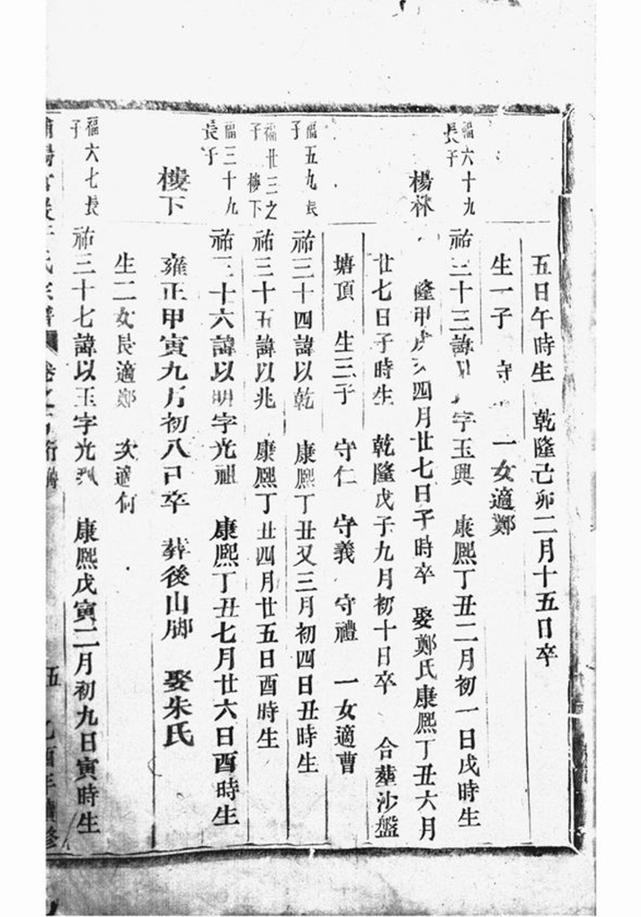 五日午時生 乾隆己卯二月十五日卒
生一子 守 一女適鄭
福六十九長子
祐三十三諱以 字玉興 康熙丁丑二月初一日戌時生
楊林
隆甲戌 四月廿七日子時卒 娶鄭氏康熙丁丑六月
廿七日子時生 乾隆戊子九月初十日卒 合塟沙盤
塘頂 生三子 守仁 守義 守禮 一女適曹
福五九長子
祐三十四諱以乾 康熙丁丑又三月初四日丑時生
福廿三之子 樓下
祐三十五諱以兆 康熙丁丑四月廿五日酉時生
福三十九長子
祐三十六諱以明字光祖 康熙丁丑七月廿六日酉時生
樓下
雍正甲寅九月初八日卒 葬後山脚 娶朱氏
生二女長適鄭 次適何
福六七長子
祐三十七諱以玉字光 康熙戊寅二月初九日寅時生
氏宗譜 卷之 伍 乙酉年續修